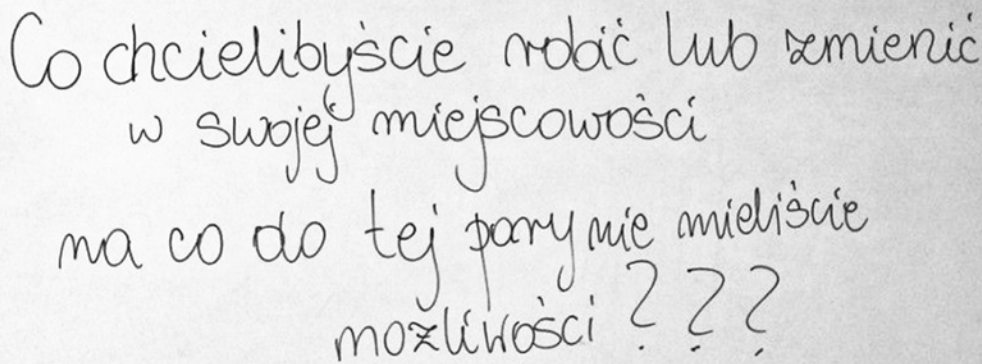 Co chcielibyście robić lub zmienić
w swojej miejscowości
na co do tej pory nie mieliście
możliwości ???